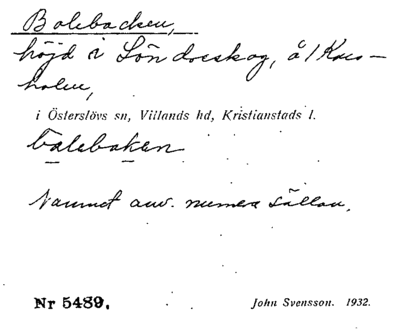 Balebacken,
höjd i Söndreskog, å / Kars-
holm,
i Österslövs sn, Villands hd, Kristianstads l.
balebaken
Namnet anv. numera sällan.
Nr 5489.
John Svensson. 1932.